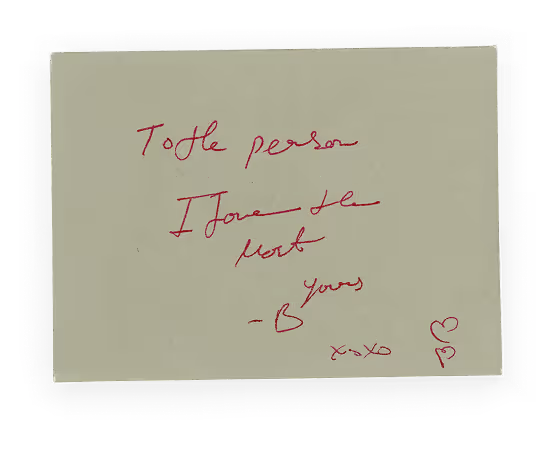 To the person
I love the
Most
yours
-B
xoxo